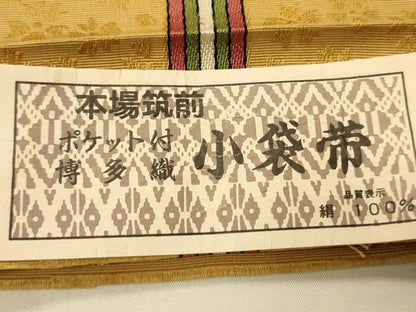 本場筑前
ポケット付
博多織
小袋帯
品質表示
絹 100%